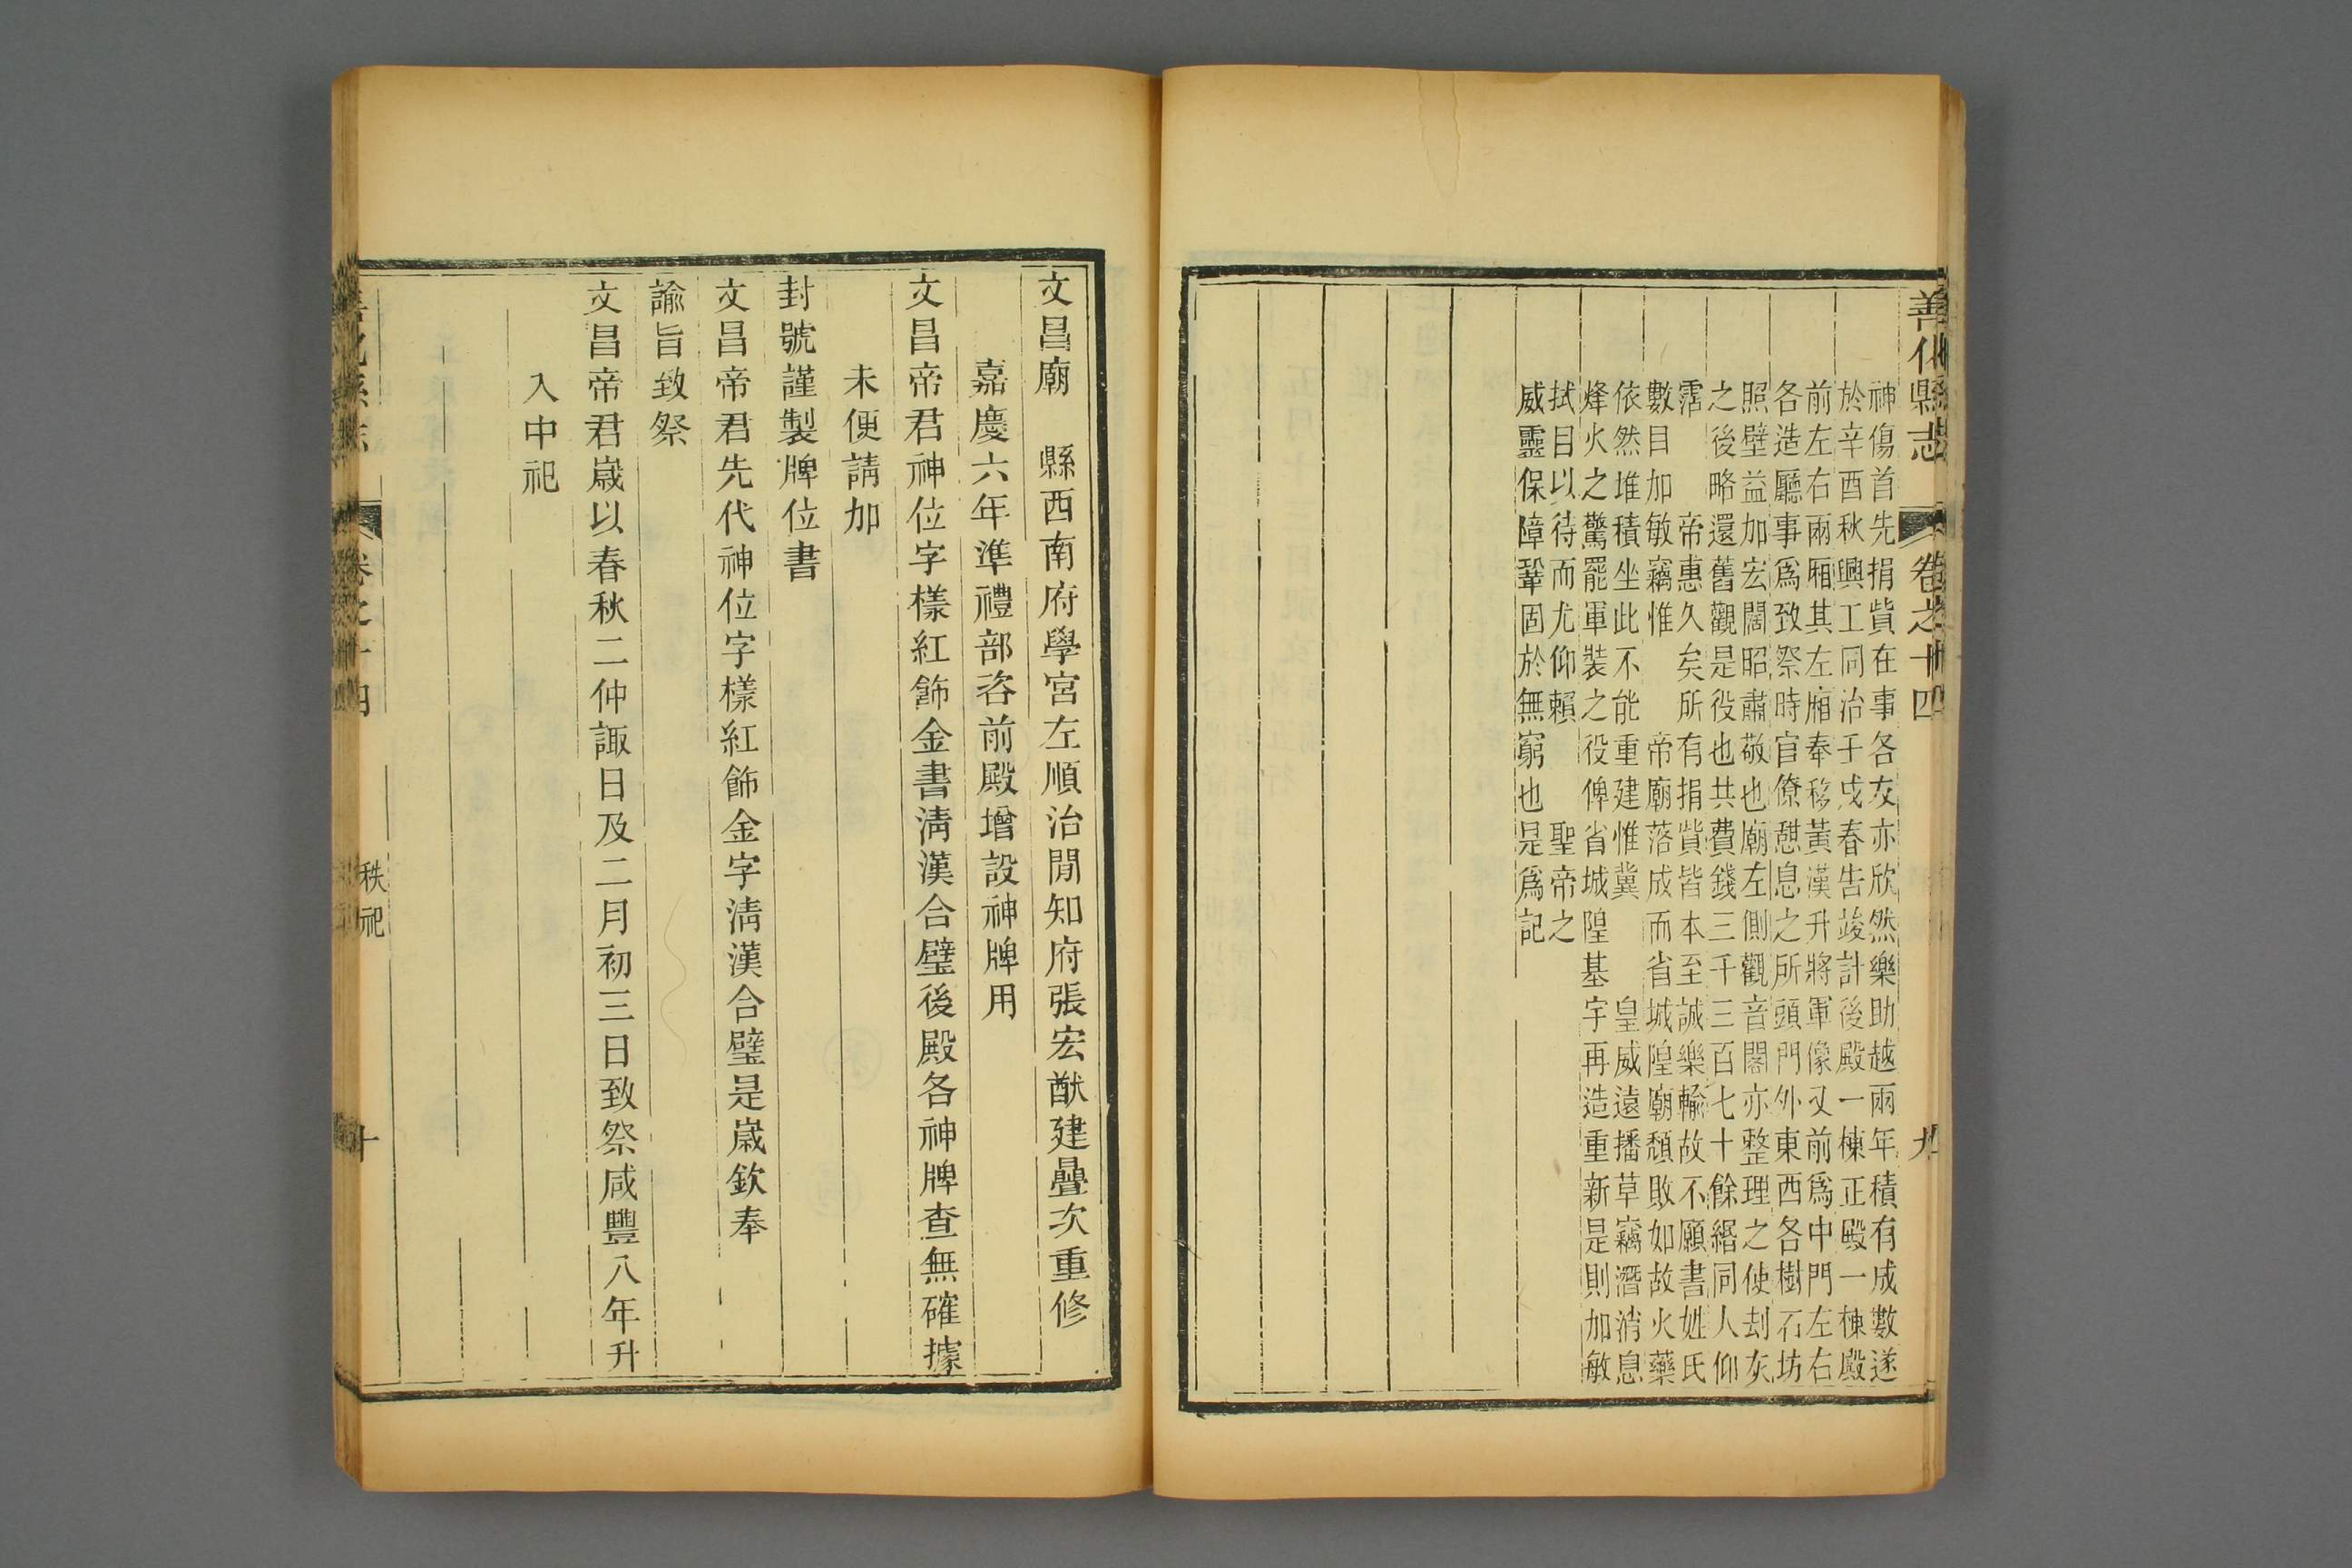 善化縣志 卷之十四 九
神傷首先捐貲在事各友亦欣然樂助越兩年積有成數遂
於辛酉秋興工同治壬戌春告竣計後殿一棟正殿一棟殿
前左右兩厢其左廂奉移黃漢升將軍像又前爲中門左右
各造廳事爲致祭時官僚憇息之所頭門外東西各樹石坊
照壁益加宏闊昭肅敬也廟左側觀音閣亦整理之使刦灰
之後略還舊觀是役也共費錢三千三百七十餘緡同人仰
霑 帝惠久矣所有捐貲皆本至誠樂輸故不願書姓氏
數目加敏竊惟 帝廟落成而省城隍廟頹敗如故火藥
依然堆積坐此不能重建惟冀 皇威遠播草竊潛消息
烽火之驚罷軍裝之役俾省城隍基宇再造重新是則加敏
拭目以待而尤仰賴 聖帝之
威靈保障鞏固於無窮也是爲記
文昌廟 縣西南府學宮左順治閒知府張宏猷建疊次重修
嘉慶六年準禮部咨前殿增設神牌用
文昌帝君神位字樣紅飾金書淸漢合璧後殿各神牌查無確據
未便請加
封號謹製牌位書
文昌帝君先代神位字樣紅飾金字淸漢合璧是嵗欽奉
諭旨致祭
文昌帝君嵗以春秋二仲諏日及二月初三日致祭咸豐八年升
入中祀
善化縣志 卷之十四 秩祀 十